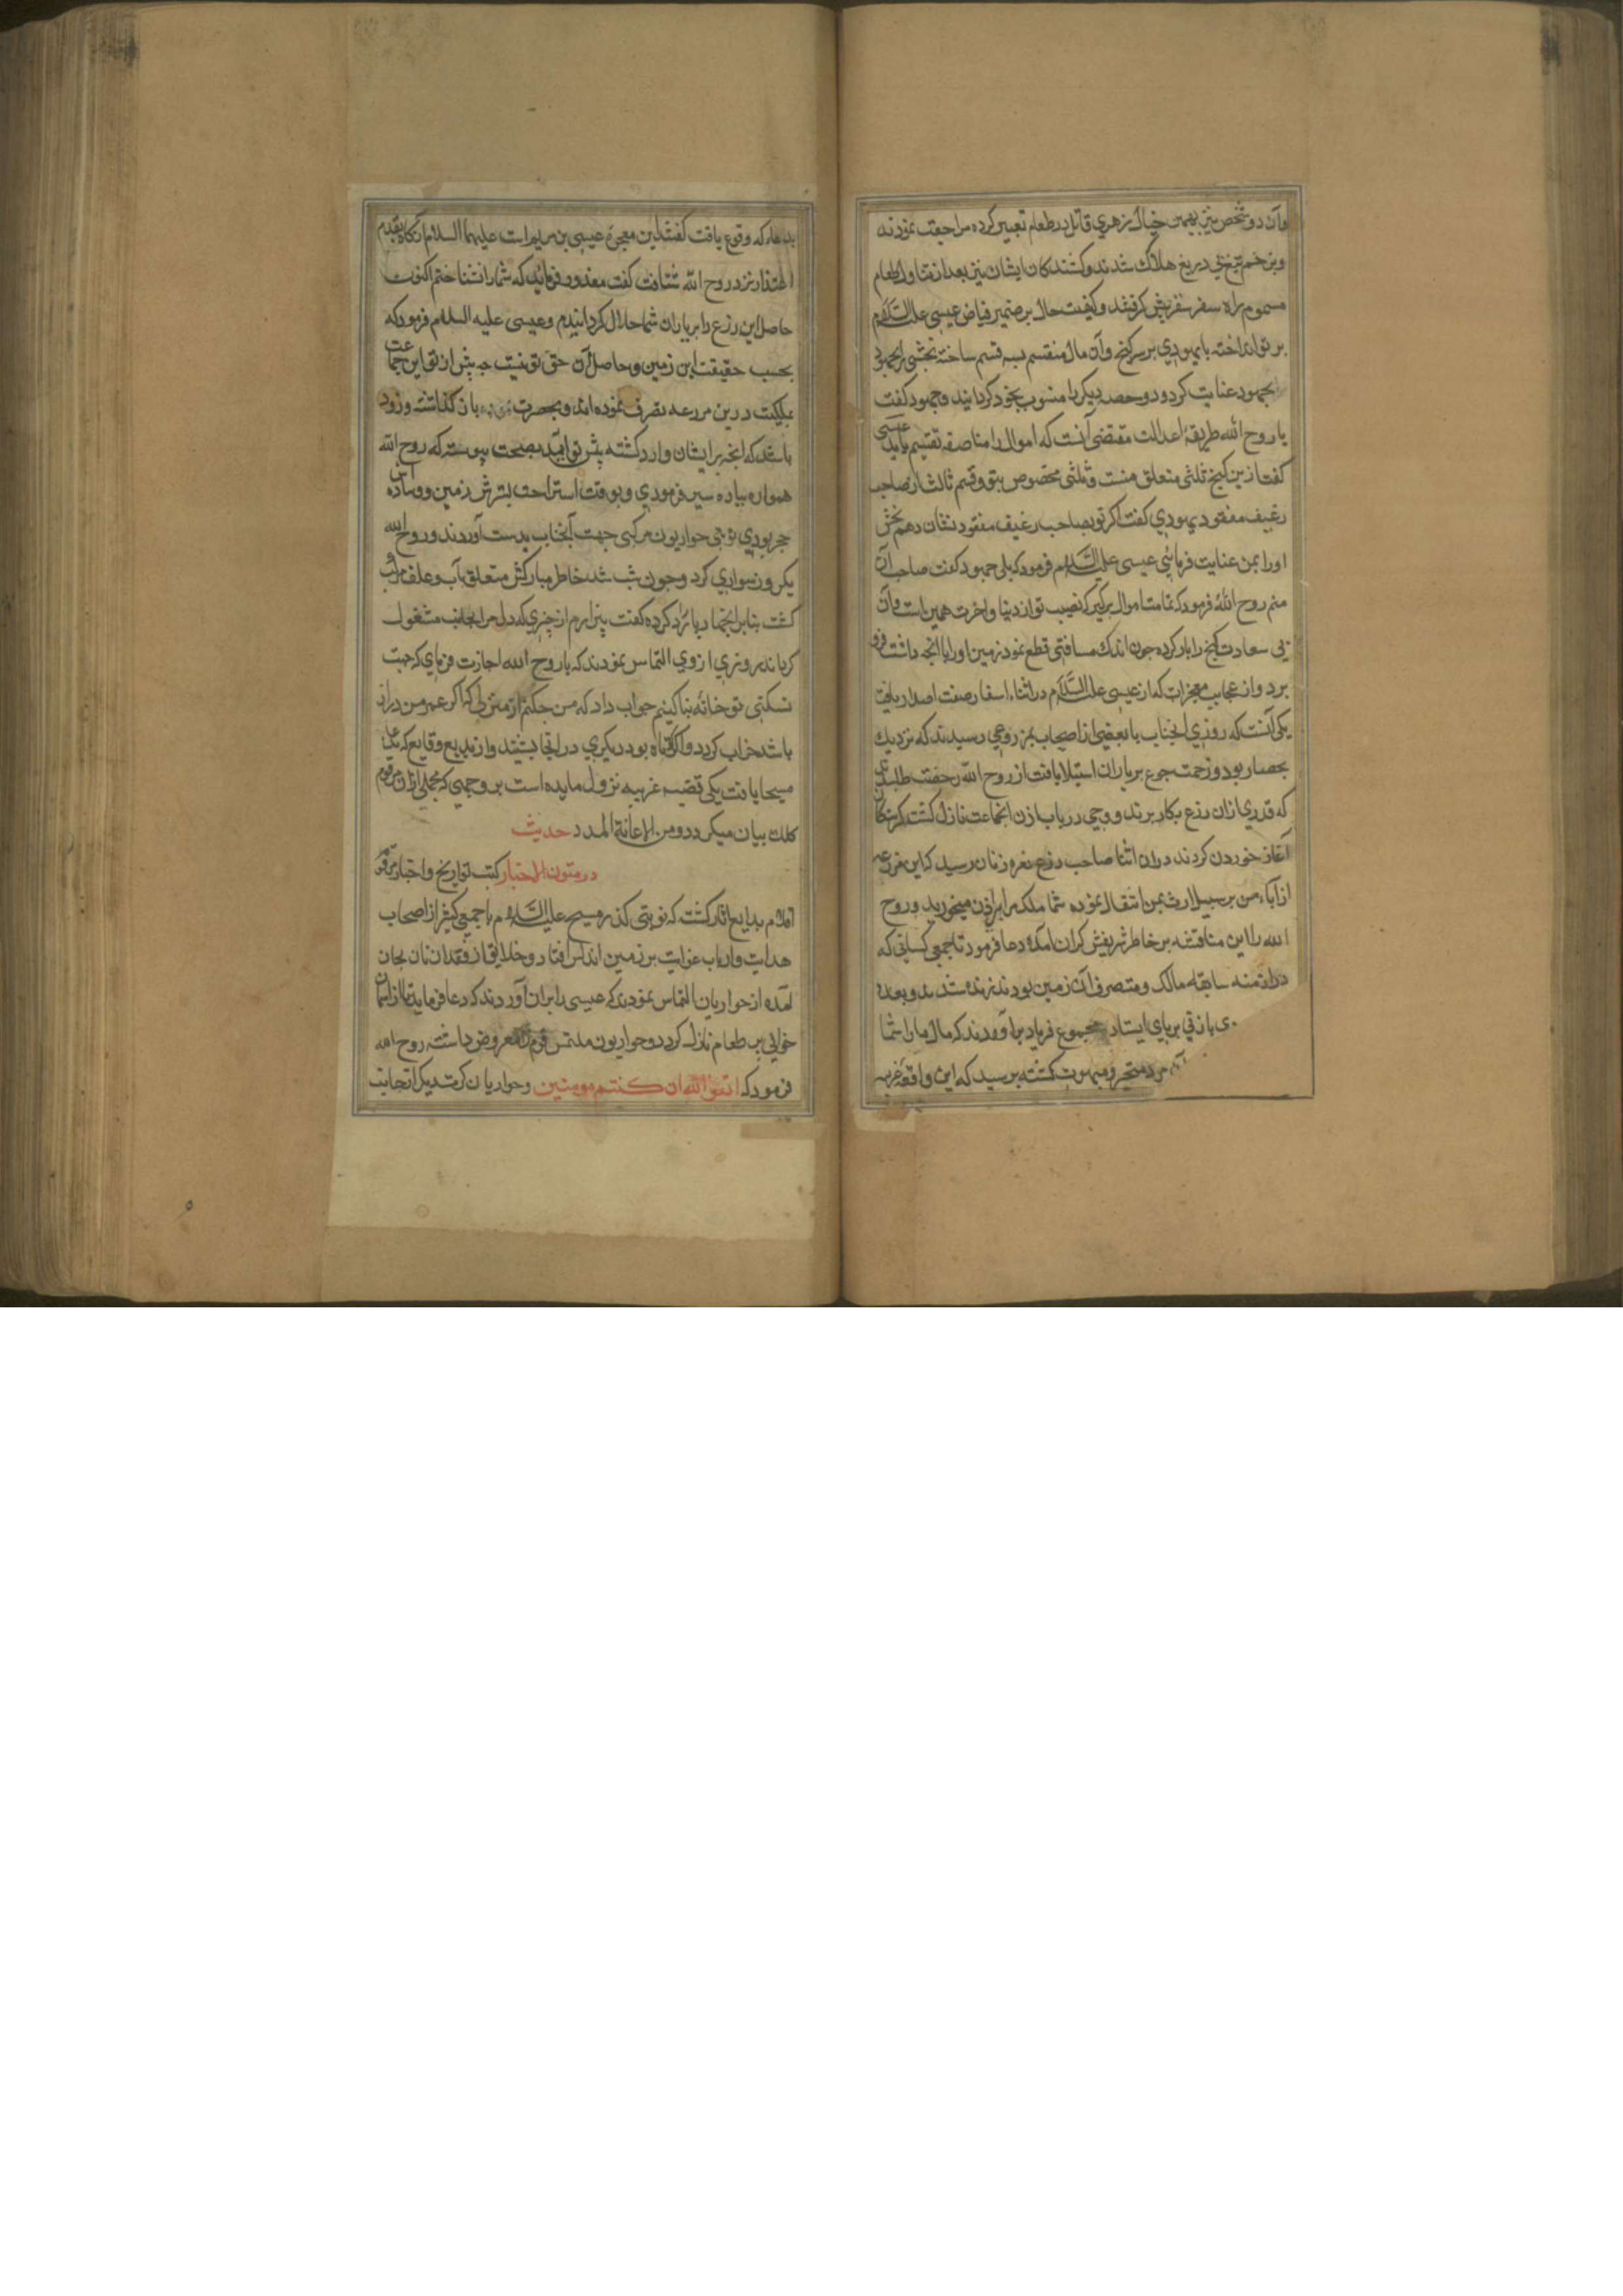 وآن دو شخص نیز بهمین خیال زهری قاتل در طعام تعبیر کرده مراجعت نمودند
وبزخم تیغ بی دریغ هلاک شدند وکشندکان ایشان نیز بعد از تناول طعام
مسموم براه سفر سقر پیش کرفتند وکیفیت حال بر ضمیر فیاض عیسی علیه السلام
پرتو انداخته با یهودی بر سر کنج وآن مال منقسم بسه قسم ساخته بخشی را بجهود
بجهود عنایت کرد ودو حصه دیکر را منسوب بخود کردانید وجهود کفت
یا روح الله طریقۀ عدالت مقتضی آنست که اموال را مناصفه تقسیم یابد عیسی
کفت ازین کنج ثلثی متعلق منست وثلثی مخصوص بتو وقسم ثالث از صاحب
رغیف مفقود یهودی کفت اکر توبصاحب رغیف مفقود نشان دهم بخش
اورا بمن عنایت فرمائی عیسی علیه السلام فرمود که بلی جهود کفت صاحب آن
منم روح الله فرمود که تمامت اموال برکیر که نصیب تو از دنیا واخرت همین است وآن
بی سعادت کنج را بار کرده جون اندک مسافتی قطع نمود زمین اورا باانجه داشت فرو
برد واز عجایب معجزات که از عیسی علیه السلام در اثناء اسفار صفت اصدار یافت
یکی آنست که روزی انجناب با بعضی از اصحاب بمزروعی رسیدند که نزدیک
بحصار بود وزحمت جوع بر یاران استیلا یافت از روح الله رخصت طلبیدند
که قدری ازان زرع بکار برند ووحی در باب اذن انجماعت نازل کشت کرسنکان
آغاز خوردن کردند دران اثنا صاحب زرع نعره زنان رسید که این مزرعه
از آباء من بر سبیل ارث بمن انتقال نموده شما ملک مرا بی اذن میخورید وروح
الله را این مناقشه بر خاطر شریفش کران آمده دعا فرمود تا جمعی کسانی که
در ازمنه سابقه مالک ومتصرف آن زمین بودند زنده شدند وبعده
ی باذنی بر پای ایستاد مجموع فریاد براوردند که مال مارا شما
آن مرد متحیر ومبهوت کشته پرسید که این واقعۀ غریبه
بدعاء که وقوع یافت کفتند این معجزۀ عیسی بن مریم است علیهما السلام آنکاه بقدم
اعتذار نزد روح الله شتافت کفت معذور فرمائید که شمارا نشناختم اکنون
حاصل این زرع را بر یاران شما حلال کردانیدم وعیسی علیه السلام فرمود که
بحسب حقیقت این زمین وحاصل آن حق تو نیست جه پیش از تو این جماعت
بملکیت درین مزرعه تصرف نموده اند وبحسرت باز کذاشته وزود
باشد که انجه بر ایشان وارد کشته پیش تو آید بصحت پیوسته که روح الله
همواره پیاده سیر فرمودی وبوقت استراحت بسترش زمین ووساده اش
حجر بودی نوبتی حواریون مرکبی جهت آنجناب بدست آوردند وروح الله
یکروز سواری کرد وجون شب شد خاطر مبارکش متعلق بآب وعلف مرکب
کشت بنابر انجهار پارا رد کرده کفت بیزارم از چیزی که دل مرا بجانب مشغول
کرداند وروزی ازوی التماس نمودند که یا روح الله اجازت فرمای که جهت
سکنی تو خانه بنا کنیم جواب داد که من جکنم از منزلی که اکر عمر من دراز
باشد خراب کردد واکر کوتاه بود دیکری در انجا نشیند واز بدایع وقایع که بدعاء
مسیحا یافت یکی قضیه غریبه نزول مایده است بر وجهی که مجملی ازان مرقوم
کلک بیان میکردد ومن الاعانة المدد حدیث
در متون الاخبار کتب تواریخ واخبار مرقوم
اقلام بدایع اثار کشت که نوبتی کذر مسیح علیه السلام با جمعی کثیر از اصحاب
هدایت وارباب غوایت بر زمین اندلس افتاد وخلایق از فقدان نان بجان
آمده از حواریان التماس نمودند که عیسی را بران آوردند که دعا فرماید تا از آسمان
خوانی پر طعام نازل کردد وحواریون ملتمس قوم را معروض داشته روح الله
فرمود که اتقوا الله ان کنتم مومنین وحواریان کرت دیکر انجانب